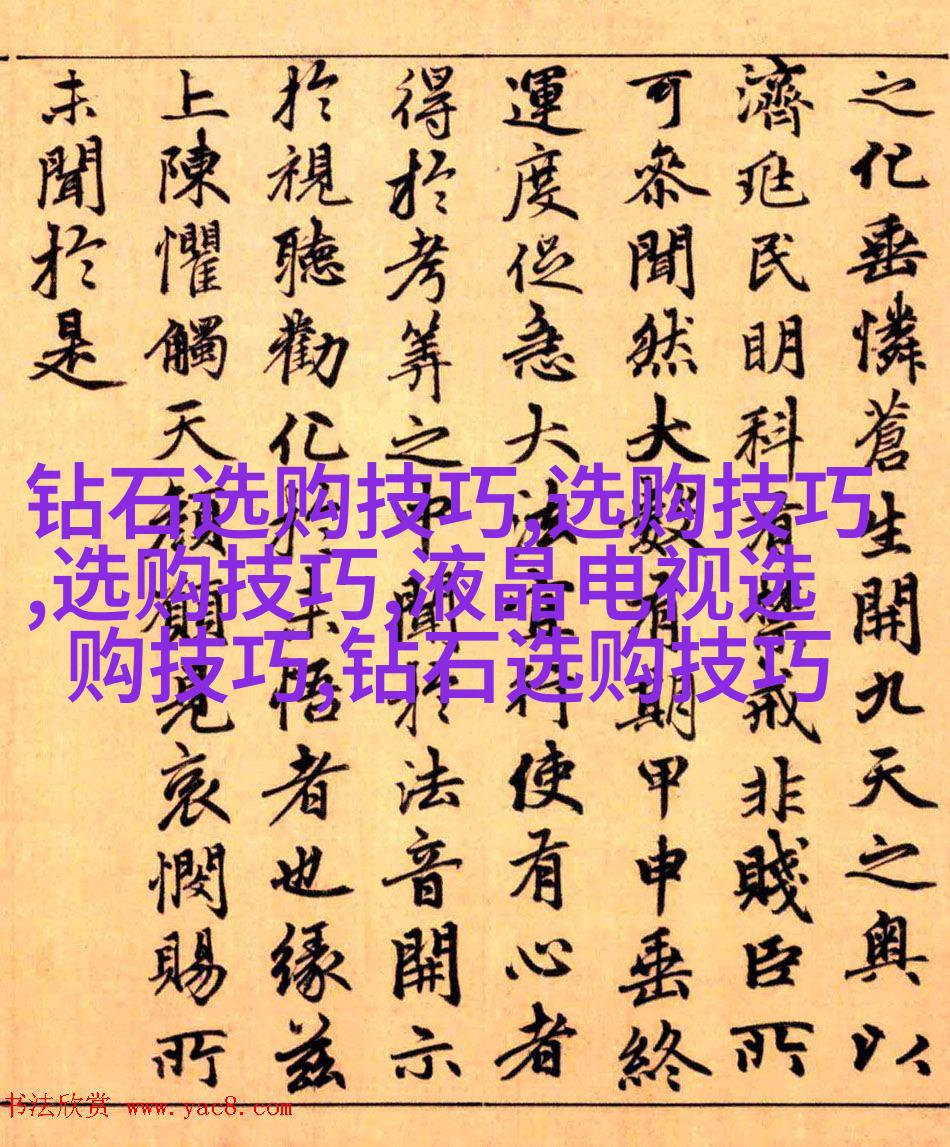 之化垂憐蒼生開九天之奥以
濟兆民明科者禁戒非賤臣所
可叅聞然大數有期甲申垂終
運度促急大法宣行使有心者
得於考筭之中聞於法音開示
於視聽勸化於未悟者也縁兹
上陳懼觸天顔願見哀憫賜所
未聞於是
钻石选购技巧,选购技巧
,选购技巧,液晶电视选
购技巧,钻石选购技巧
书法欣赏 www.yac8.com